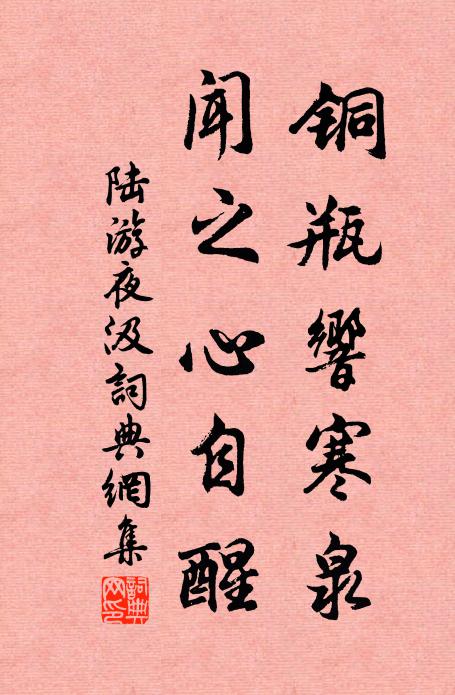 銅瓶響寒泉
聞之心自醒
陆游夜汲詞典網集
詞典
网印